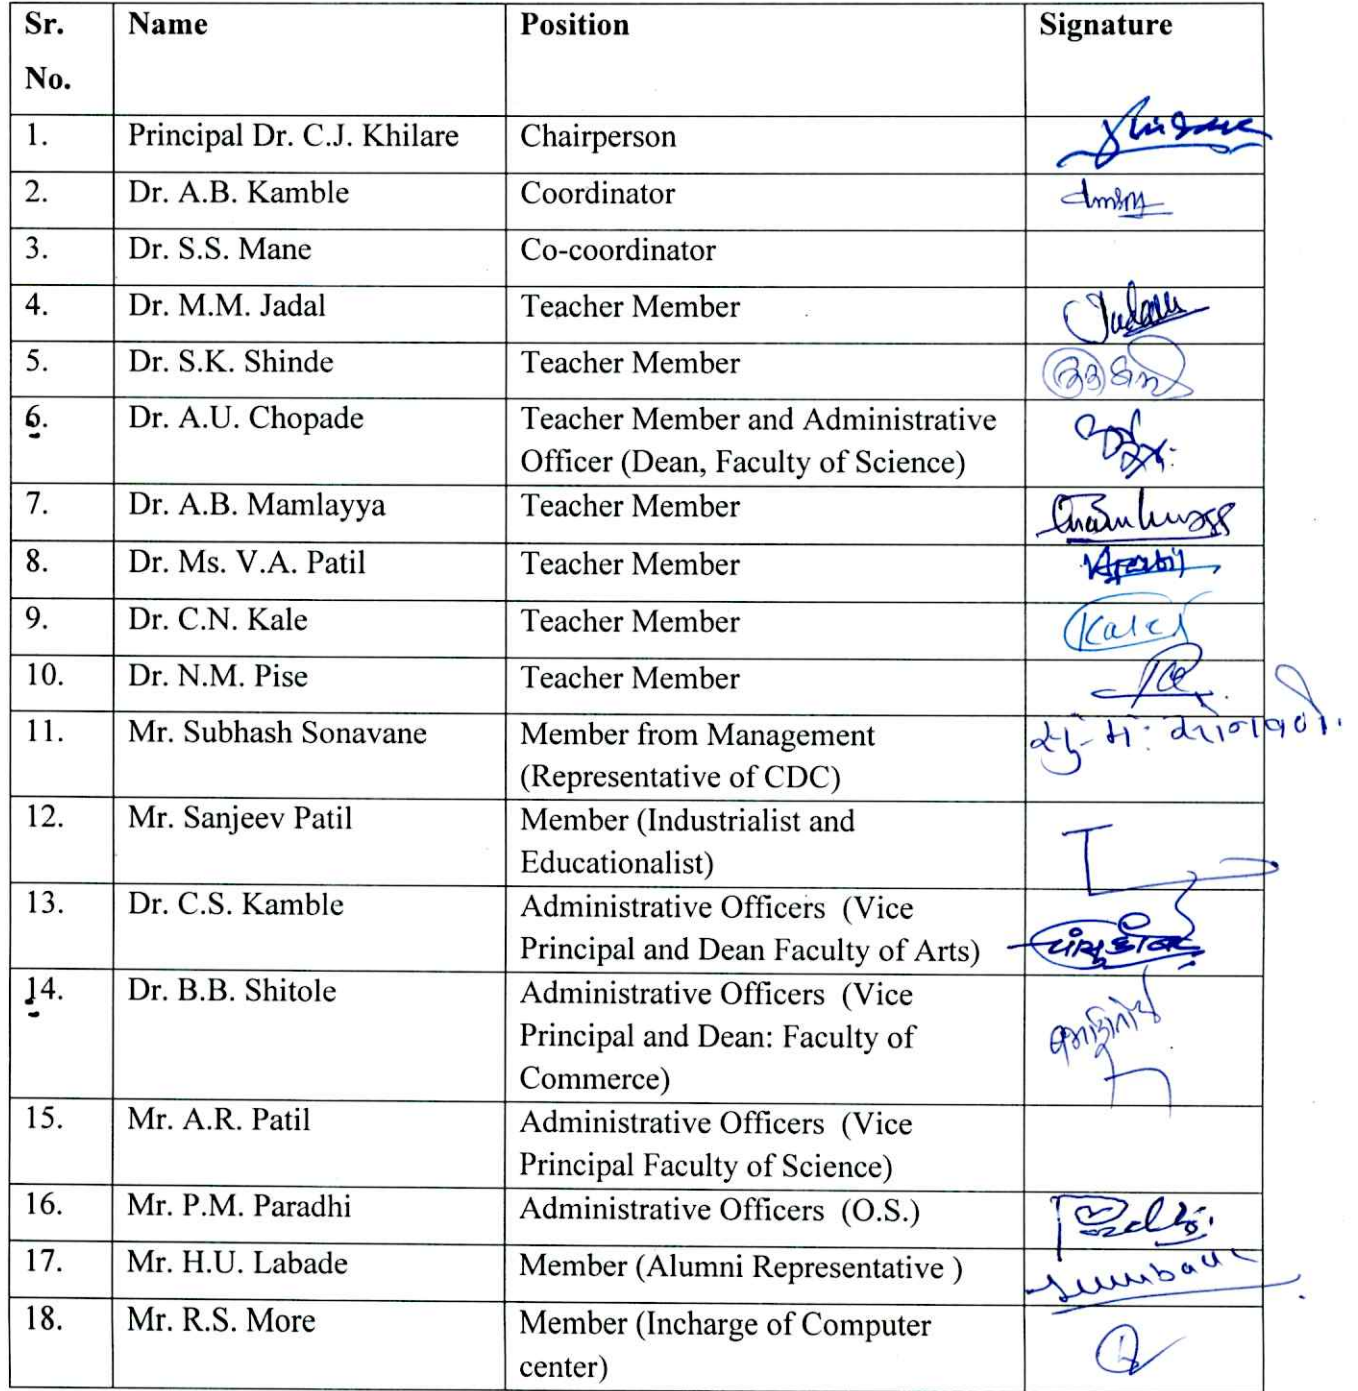 Sr. No. Name Position Signature
1. Principal Dr. C.J. Khilare Chairperson
2. Dr. A.B. Kamble Coordinator
3. Dr. S.S. Mane Co-coordinator
4. Dr. M.M. Jadal Teacher Member
5. Dr. S.K. Shinde Teacher Member
6. Dr. A.U. Chopade Teacher Member and Administrative
Officer (Dean, Faculty of Science)
7. Dr. A.B. Mamlayya Teacher Member
8. Dr. Ms. V.A. Patil Teacher Member
9. Dr. C.N. Kale Teacher Member Kale
10. Dr. N.M. Pise Teacher Member
11. Mr. Subhash Sonavane Member from Management
(Representative of CDC)
12. Mr. Sanjeev Patil Member (Industrialist and
Educationalist)
13. Dr. C.S. Kamble Administrative Officers (Vice
Principal and Dean Faculty of Arts)
14. Dr. B.B. Shitole Administrative Officers (Vice
Principal and Dean: Faculty of
Commerce)
15. Mr. A.R. Patil Administrative Officers (Vice
Principal Faculty of Science)
16. Mr. P.M. Paradhi Administrative Officers (O.S.)
17. Mr. H.U. Labade Member (Alumni Representative )
18. Mr. R.S. More Member (Incharge of Computer
center)